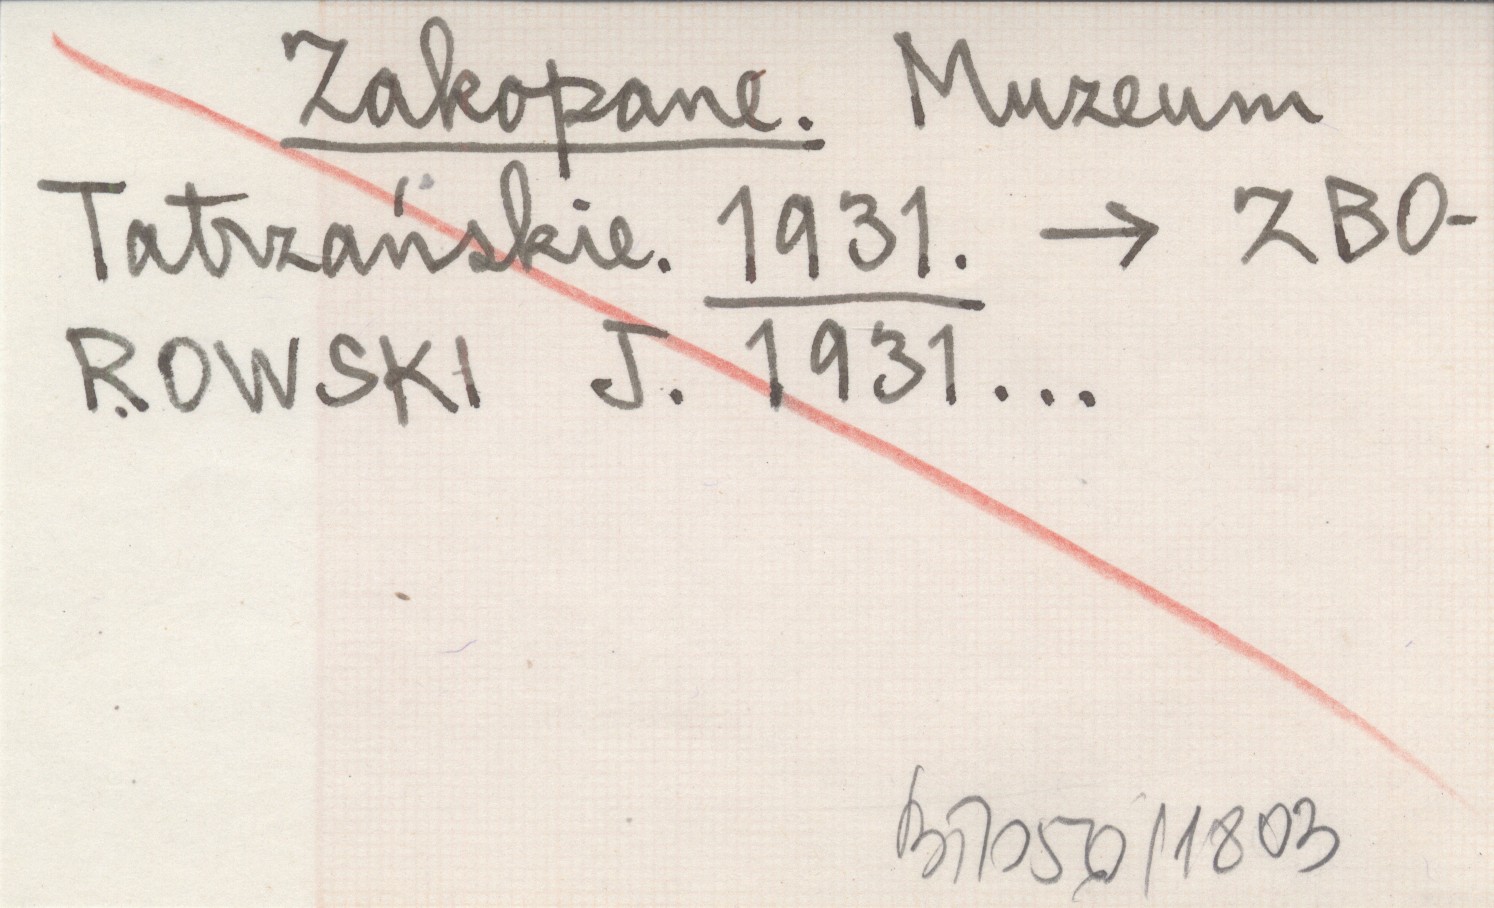 Zakopane. Muzeum
Tatrzańskie. 1931. → ZBO-
ROWSKI J. 1931...
1803